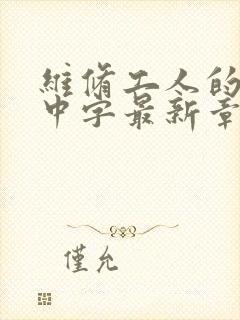 維修工人的
中字最新章
僅允